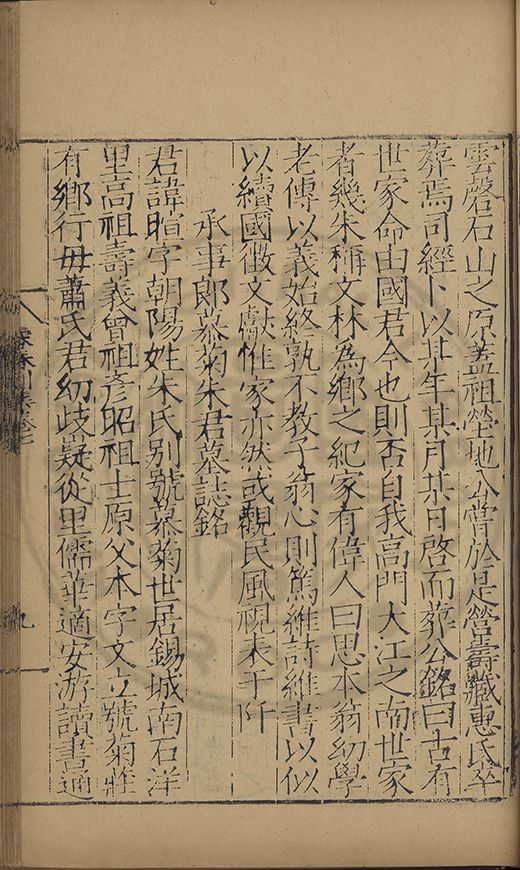 雲磬石山之原蓋祖塋地公嘗於是營壽藏惠氏卒
葬焉司經卜以某年某月某日啓而葬公銘曰古有
世家命由國君今也則否自我高門大江之南世家
者幾朱稱文林為鄉之紀家有偉人曰思本翁幼學
老傳以義始終孰不教子翁心則篤維詩維書以似
以續國徵文獻惟家亦然或觀民風視表于阡
承事郎慕菊朱君墓誌銘
君諱暄字朝陽姓朱氏别號慕菊世居錫城南石洋
里高祖壽義曾祖彦昭祖士原父木字文立號菊莊
有鄉行毋蕭氏君幼歧嶷從里儒華適安游讀書通
九